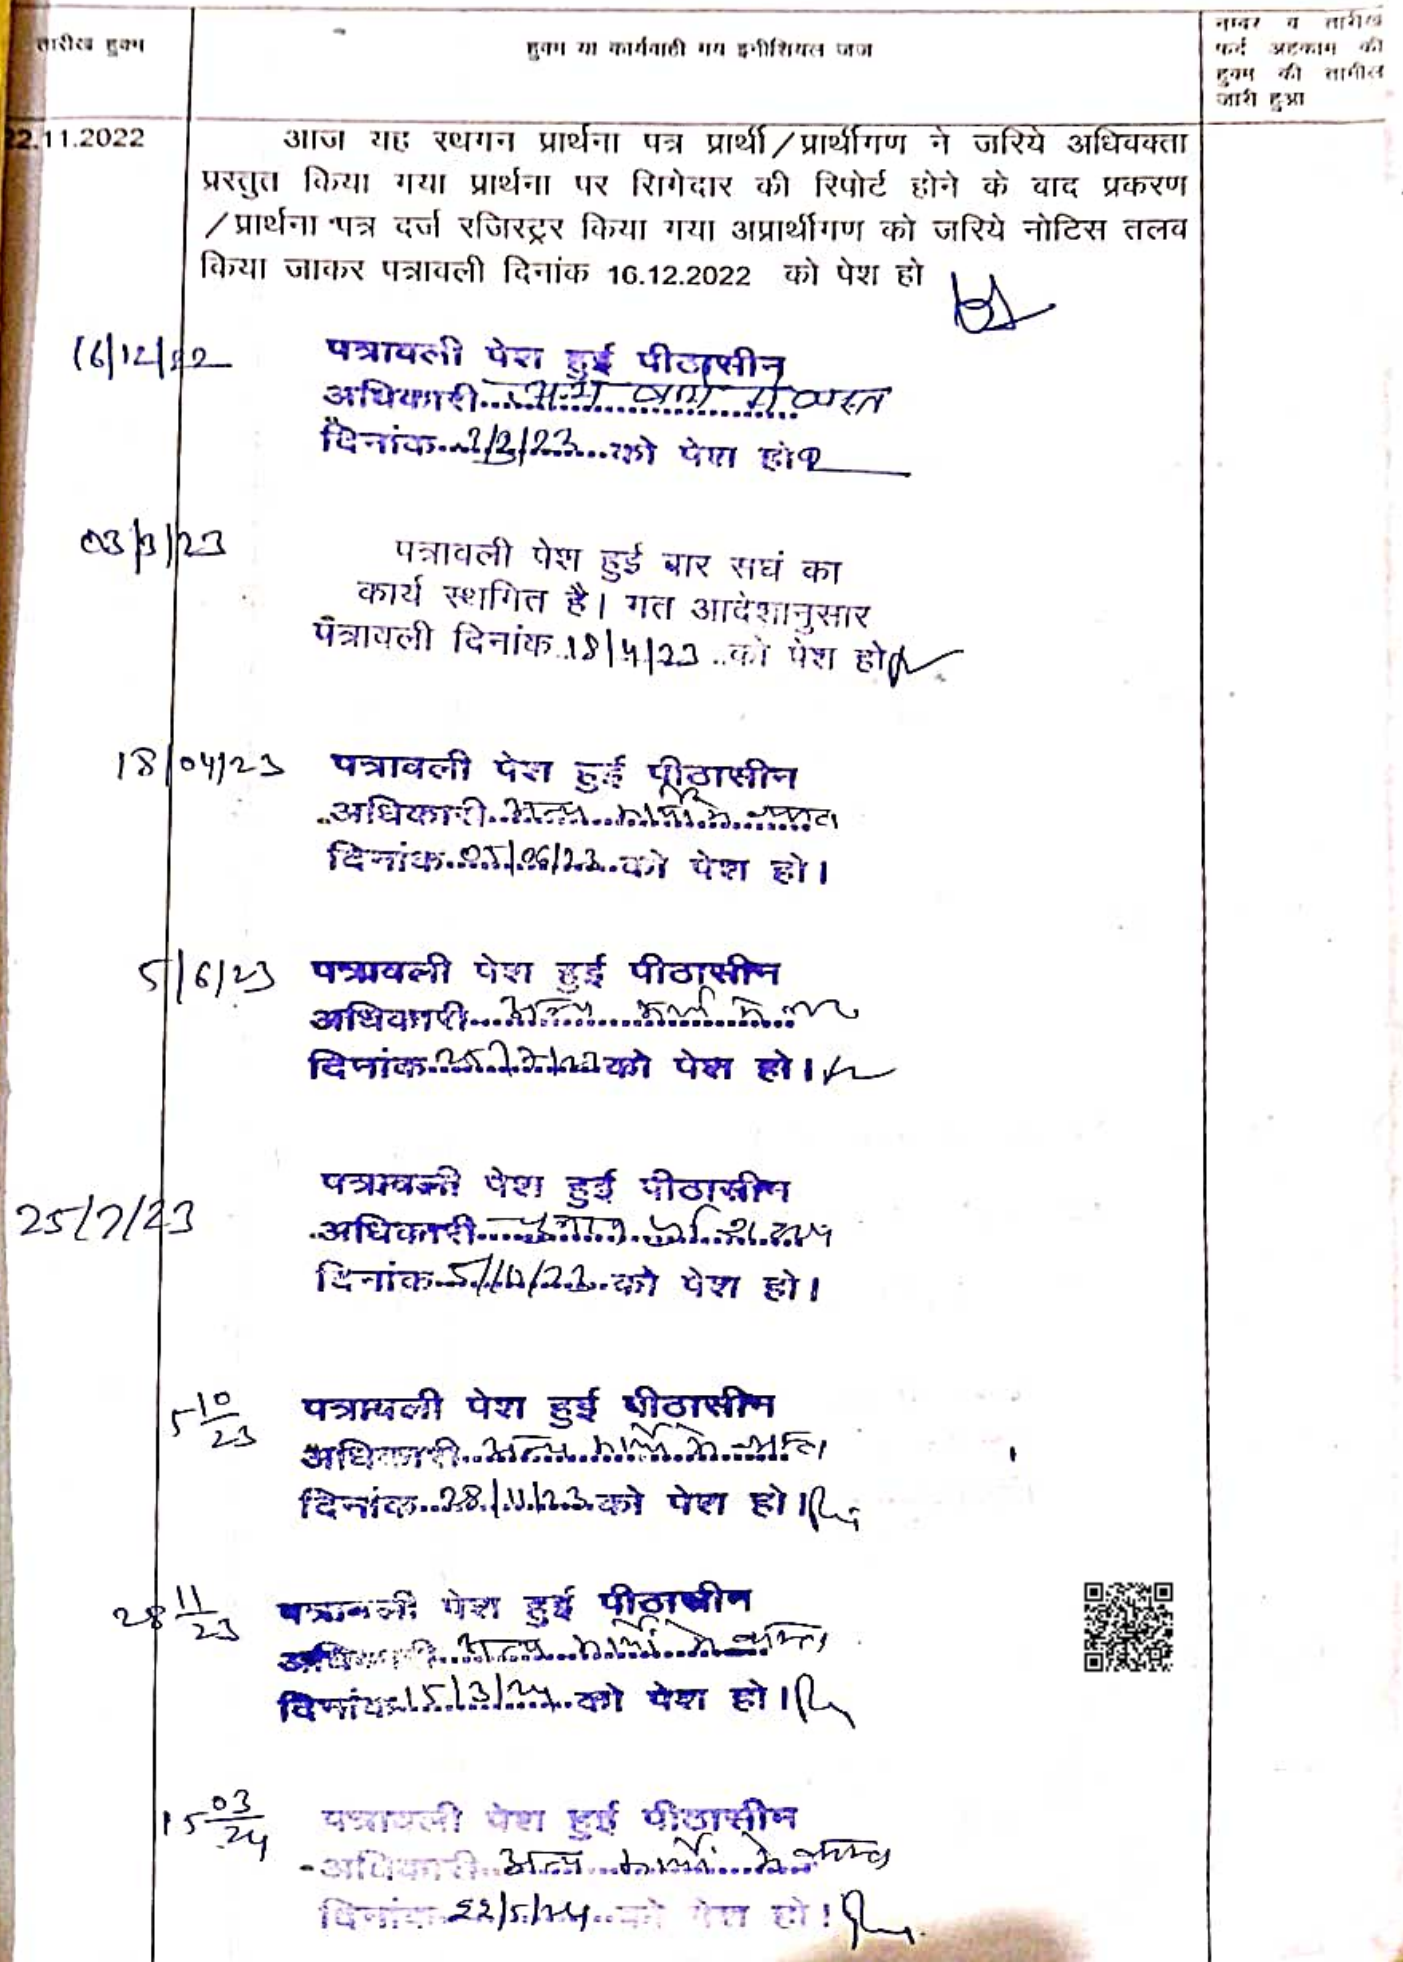 तारीख हुक्म
हुक्म या कार्यवाही मय इनीशियल जज
नम्बर व तारीख
फर्द अहकाम की
हुक्म की तामील
जारी हुआ
22.11.2022
आज यह स्थगन प्रार्थना पत्र प्रार्थी/प्रार्थीगण ने जरिये अधिवक्ता
प्रस्तुत किया गया प्रार्थना पर रिागेदार की रिपोर्ट होने के वाद प्रकरण
/प्रार्थना पत्र दर्ज रजिस्ट्रर किया गया अप्रार्थीगण को जरिये नोटिस तलव
किया जाकर पत्रावली दिनांक 16.12.2022 को पेश हो
16/12/22
पत्रावली पेश हुई पीठासीन
अधिकारी अन्य कार्य में व्यस्त
दिनांक 3/3/23 को पेश हो
03/3/23
पत्रावली पेश हुई बार सघं का
कार्य स्थगित है। गत आदेशानुसार
पत्रावली दिनांक 18/4/23 को पेश हो
18/04/23
पत्रावली पेश हुई पीठासीन
अधिकारी अन्य कार्यो में व्यस्त
दिनांक 05/06/23 को पेश हो।
5/6/23
पत्रावली पेश हुई पीठासीन
अधिकारी अन्य कार्य में
दिनांक 25/7/23 को पेश हो।
25/7/23
पत्रावली पेश हुई पीठासीन
अधिकारी
दिनांक 5/10/23 को पेश हो।
5 10/23
पत्रावली पेश हुई पीठासीन
अधिकारी अन्य कार्यो में व्यस्त
दिनांक 28/11/23 को पेश हो।
28 11/23
पत्रावली पेश हुई पीठासीन
अधिकारी अन्य कार्यो में व्यस्त
दिनांक 15/3/24 को पेश हो।
15 03/24
पत्रावली पेश हुई पीठासीन
अधिकारी अन्य कार्यो में व्यस्त
दिनांक 22/5/24 को पेश हो।